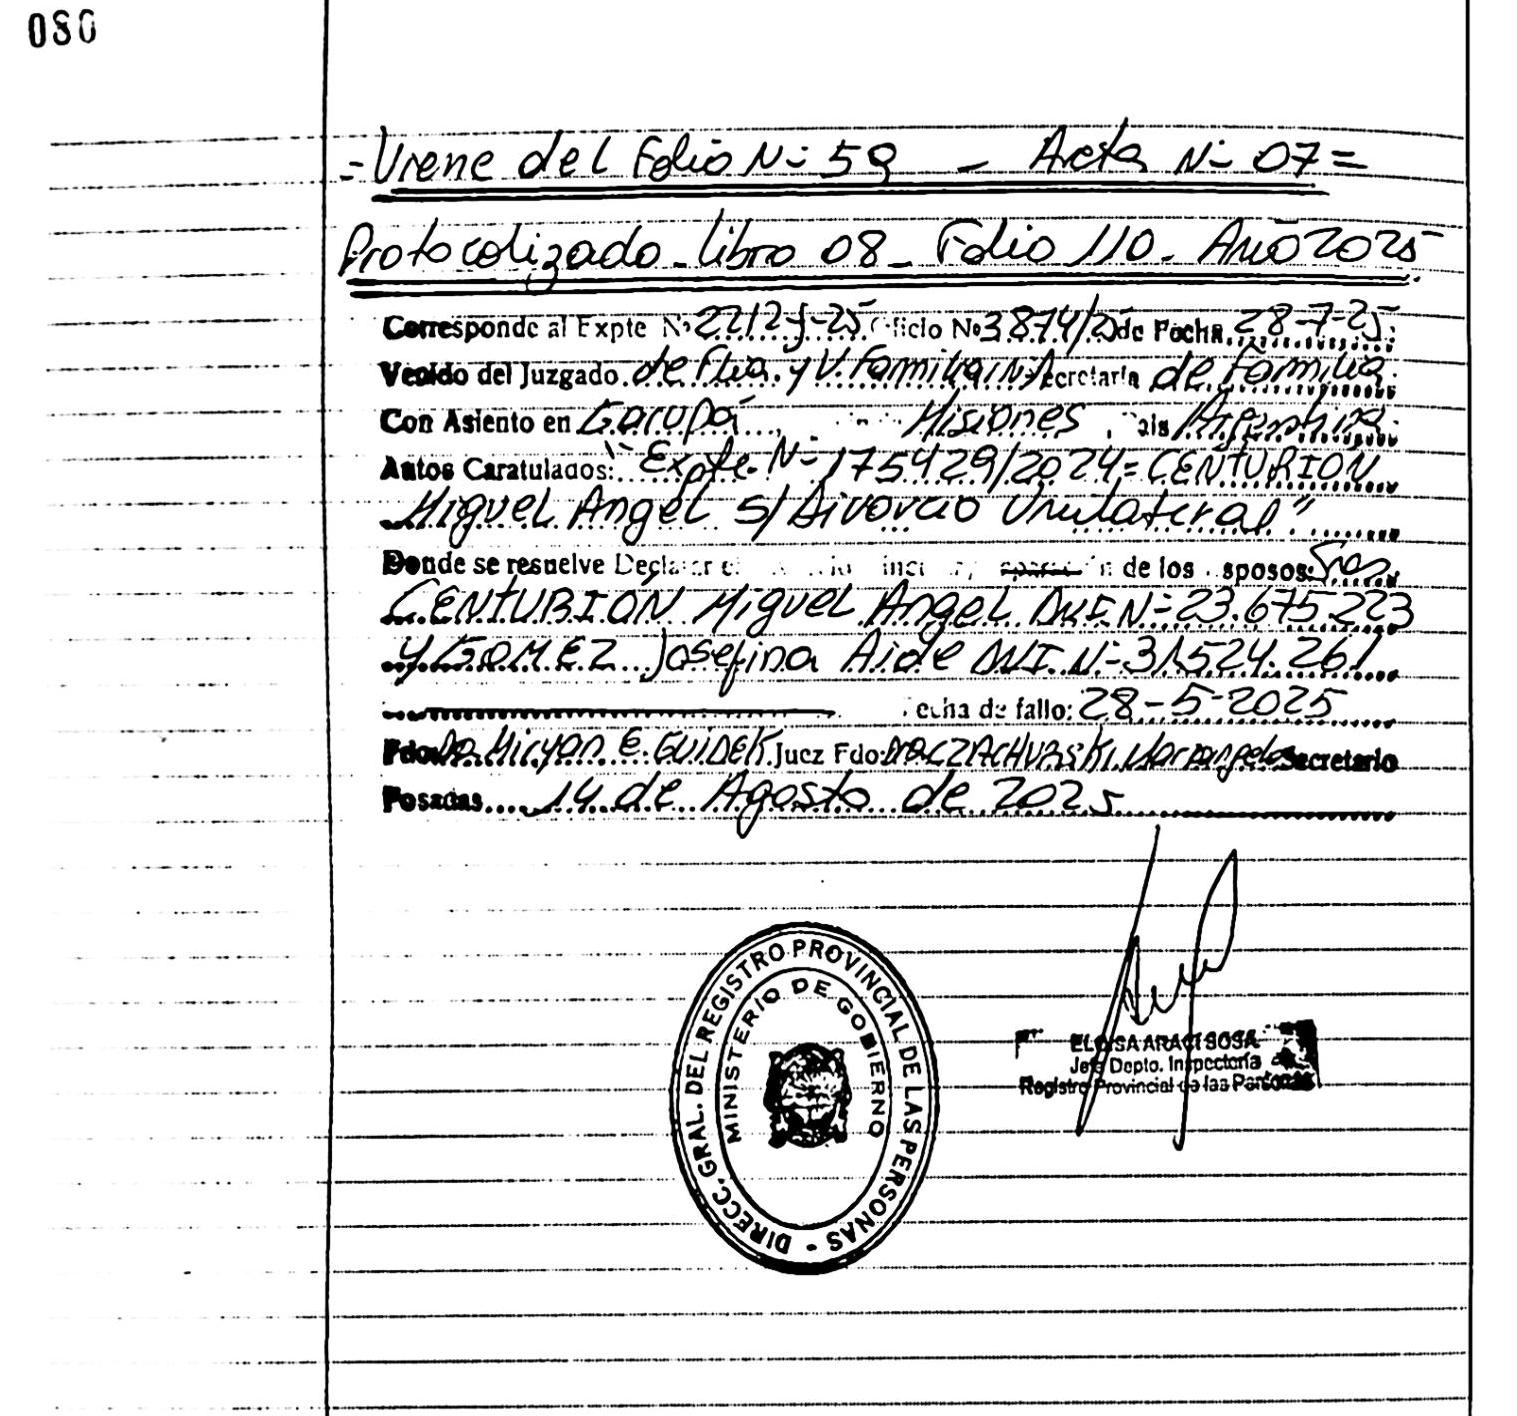 080
=Viene del Folio Nº 59 _ Acta Nº 07=
Protocolizado_libro 08_ Folio 110. Año 2025
Corresponde al Expte Nº 2212-J-25 Oficio Nº 3874/25 de Fecha 28-7-25
Venido del Juzgado de Flia. y V. Familiar Nº1 Secretaría de Familia
Con Asiento en Garupá, Misiones, País Argentina
Autos Caratulados: "Expte. Nº 175429/2024= CENTURION
Miguel Angel s/ Divorcio Unilateral"
Donde se resuelve Declarar el de los esposos: Sres.
CENTURIÓN Miguel Angel DNI Nº 23.675.223
y GOMEZ Josefina Aide DNI Nº 31.524.261
Fecha de fallo: 28-5-2025
Fdo: Dra Miryan E. GUIDEK Juez Fdo: Dra CZACHURSKI Mariangela Secretario
Posadas 14 de Agosto de 2025
DIRECC. GRAL. DEL REGISTRO PROVINCIAL DE LAS PERSONAS -
MINISTERIO DE GOBIERNO
ELOISA ARACI SOSA
Jefe Depto. Inspectoria
Registro Provincial de las Personas